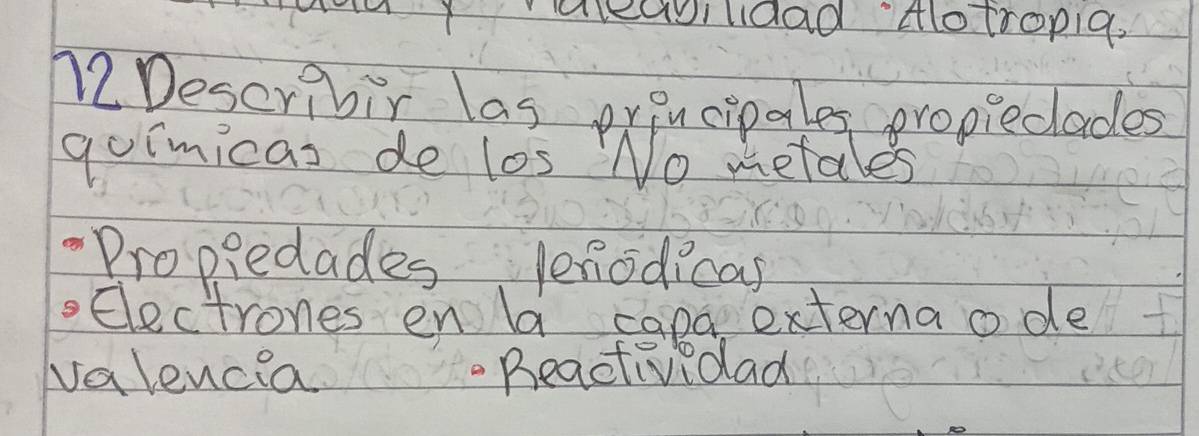 y Maleabilidad • Alotropia.
12 Describir las principales propiedades
químicas de los No metales
• Propiedades Periódicas
• Electrones en la capa externa o de
valencia • Reactividad